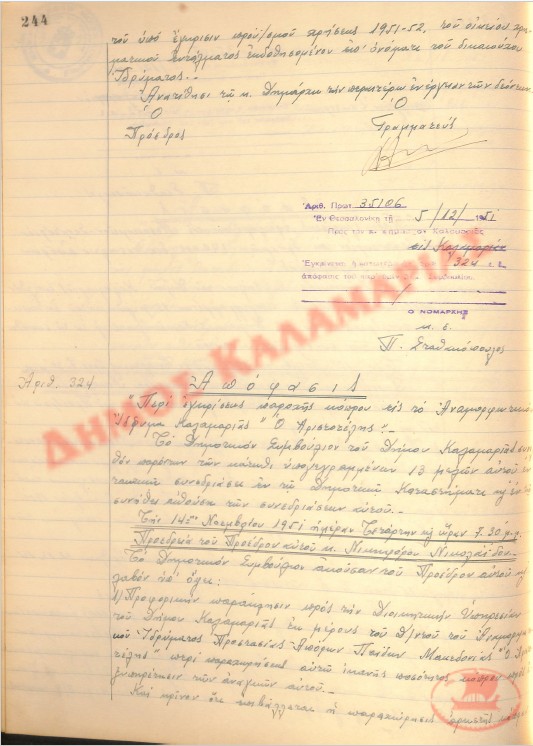 244
τοῦ ὑπὸ ἔγκρισιν προϋ/σμοῦ χρήσεως 1951-52, τοῦ οἰκείου χρη-
ματικοῦ ἐντάλματος ἐκδοθησομένου ἐπ' ὀνόματι τοῦ δικαιούχου
Ἱδρύματος.-
Ἀνατίθησι τῷ κ. Δημάρχῳ τὴν περαιτέρω ἐνέργειαν τῶν δεόντων.
Ὁ Ὁ
Πρόεδρος Γραμματεὺς
Ἀριθ. Πρωτ. 35106
Ἐν Θεσσαλονίκῃ τῇ 5/12/1951
Πρὸς τὸν κ. Δήμαρχον Καλαμαριᾶς
εἰς Καλαμαριάν
Ἐγκρίνεται ἡ 324
ἀπόφασις τοῦ
Ο ΝΟΜΑΡΧΗΣ
κ. ἐ.
Π. Σταθακόπουλος
ΔΗΜΟΣ ΚΑΛΑΜΑΡΙΑΣ
Ἀριθ. 324 Ἀπόφασις
"Περὶ ἐγκρίσεως παροχῆς κόπρου εἰς τὸ Ἀναμορφωτικὸν
Ἵδρυμα Καλαμαριᾶς "Ὁ Ἀριστοτέλης".-
Τὸ Δημοτικὸν Συμβούλιον τοῦ Δήμου Καλαμαριᾶς συνελ-
θὸν παρόντων τῶν κάτωθι ὑπογεγραμμένων 13 μελῶν αὐτοῦ ἐν
τακτικῇ συνεδριάσει ἐν τῷ Δημοτικῷ Καταστήματι κἠ ἐν τῇ
συνήθει αἰθούσῃ τῶν συνεδριάσεων αὐτοῦ.-
Τὴν 14ην Νοεμβρίου 1951 ἡμέραν Τετάρτην κἠ ὥραν 7.30 μ.μ.
Προεδρίᾳ τοῦ Προέδρου αὐτοῦ κ. Νικηφόρου Νικολαΐδου.-
Τὸ Δημοτικὸν Συμβούλιον ἀκοῦσαν τοῦ Προέδρου αὐτοῦ κἠ
λαβὸν ὑπ' ὄψει:
1) Προφορικὴν παράκλησιν πρὸς τὴν Διοικητικὴν Ὑπηρεσίαν
τοῦ Δήμου Καλαμαριᾶς ἐκ μέρους τοῦ Δ/ντοῦ τοῦ Ἀναμορφωτι-
κοῦ Ἱδρύματος Προστασίας Ἀπόρων Παίδων Μακεδονίας "Ὁ Ἀριστο-
τέλης" περὶ παραχωρήσεως αὐτῷ ἱκανῆς ποσότητος κόπρου πρὸς ἐ-
ξυπηρέτησιν τῶν ἀναγκῶν αὐτοῦ.-
Καὶ κρῖνον ὅτι ἐπιβάλλεται ἡ παραχώρησις ἀρκετῆς κόπρου